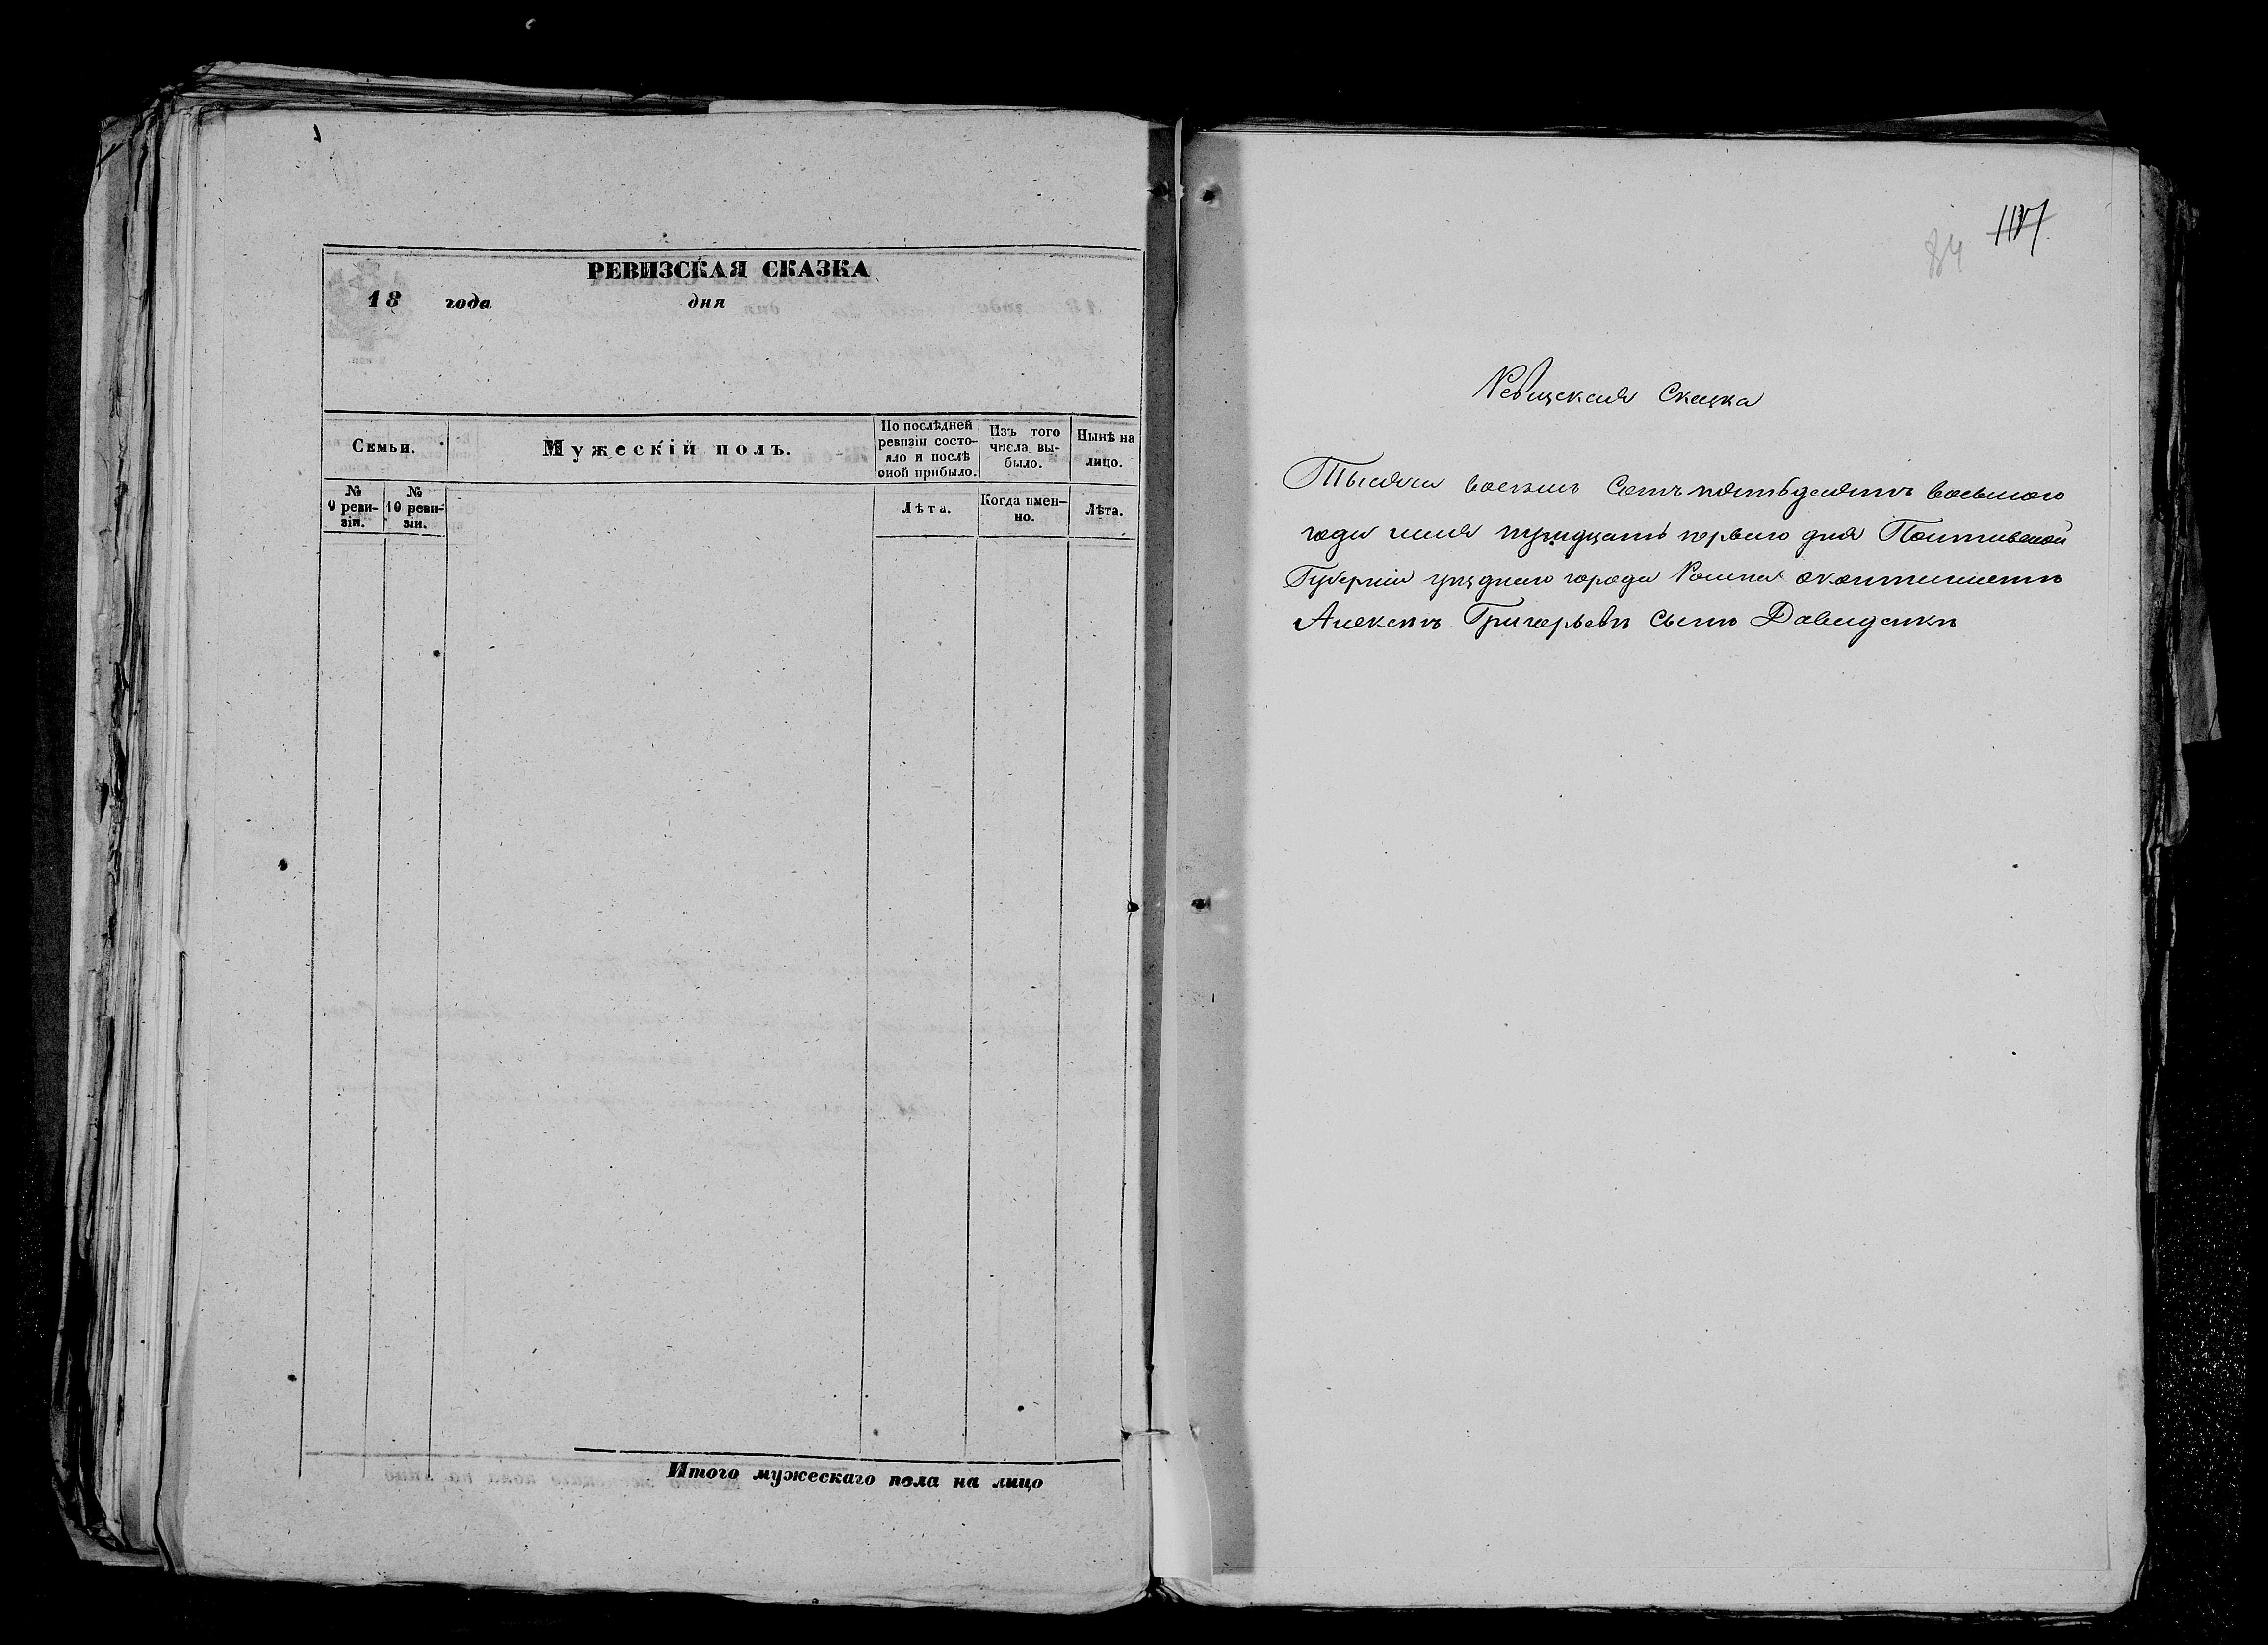 РЕВИЗСКАЯ СКАЗКА
18 года дня
Семьи.
Мужескій полъ.
По послѣдней ревизіи состо-
яло и послѣ
оной прибыло.
Изъ того
числа вы-
было.
Нынѣ на
лицо.
№
9 реви-
зіи.
№
10 реви-
зіи.
Лѣта.
Когда имен-
но.
Лѣта.
Итого мужескаго пола на лицо
84
Ревизская Сказка
Тысяча восемь Сотъ пятьдесятъ восьмого
года мая тридцать первого дня Полтавской
Губерніи уезднаго города
Алексея Григорьевъ Сынъ Давиденкъ